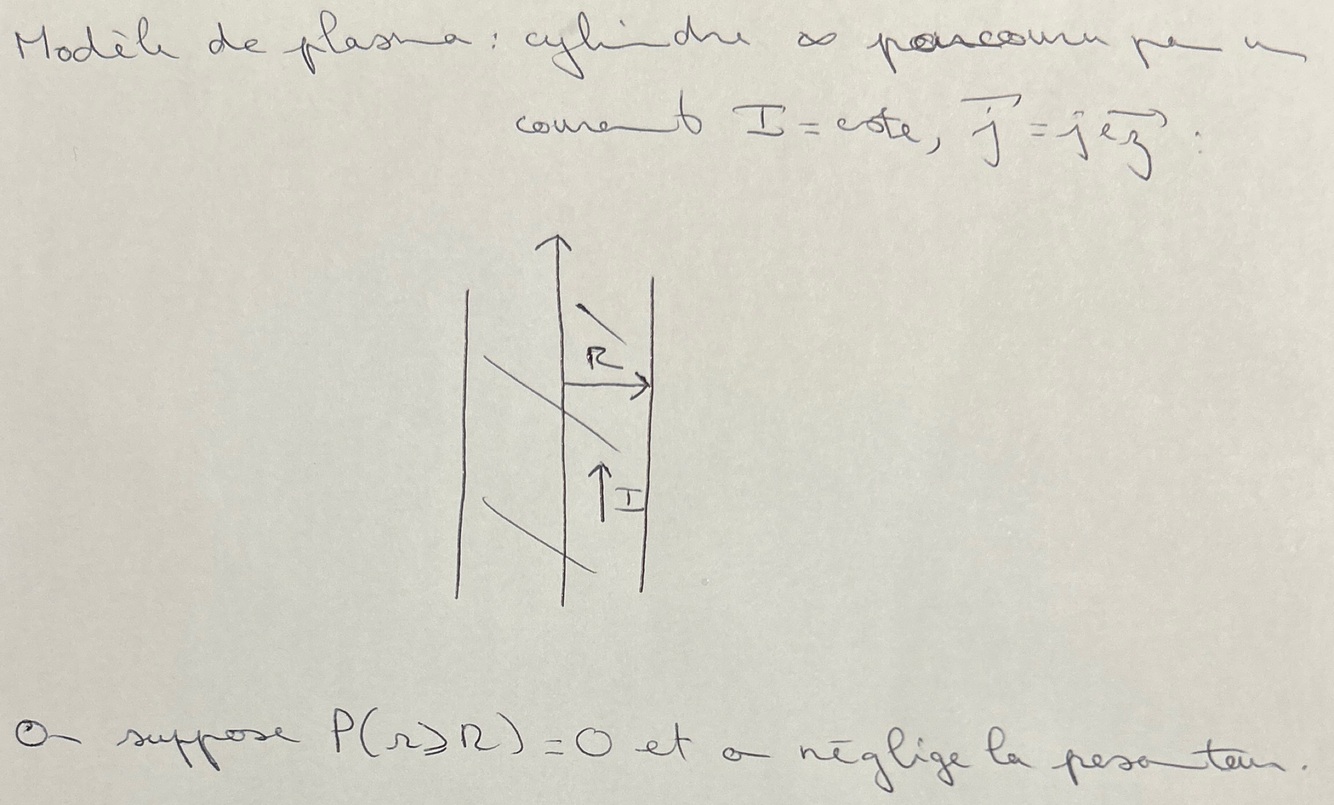 Modèle de plasma : cylindre ∞ parcouru par un
courant I = cste, j⃗ = j e⃗z :
R
I
On suppose P(r⩾R) = 0 et on néglige la pesanteur.